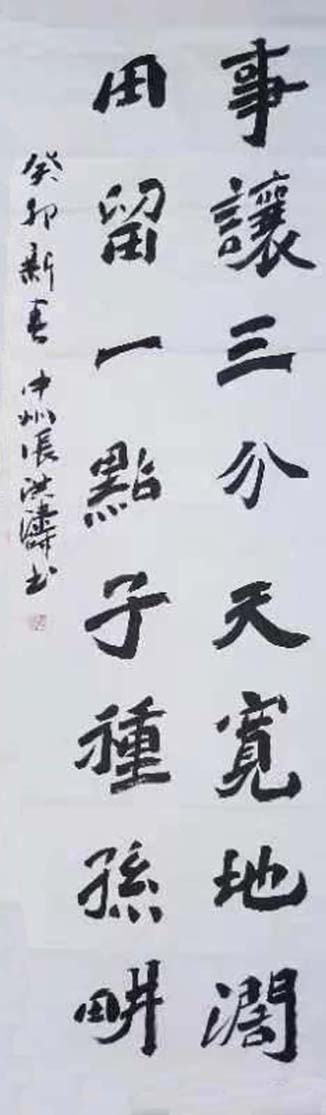 事讓三分天寬地濶
田留一點子種孫畊
癸卯新春中州張洪濤书